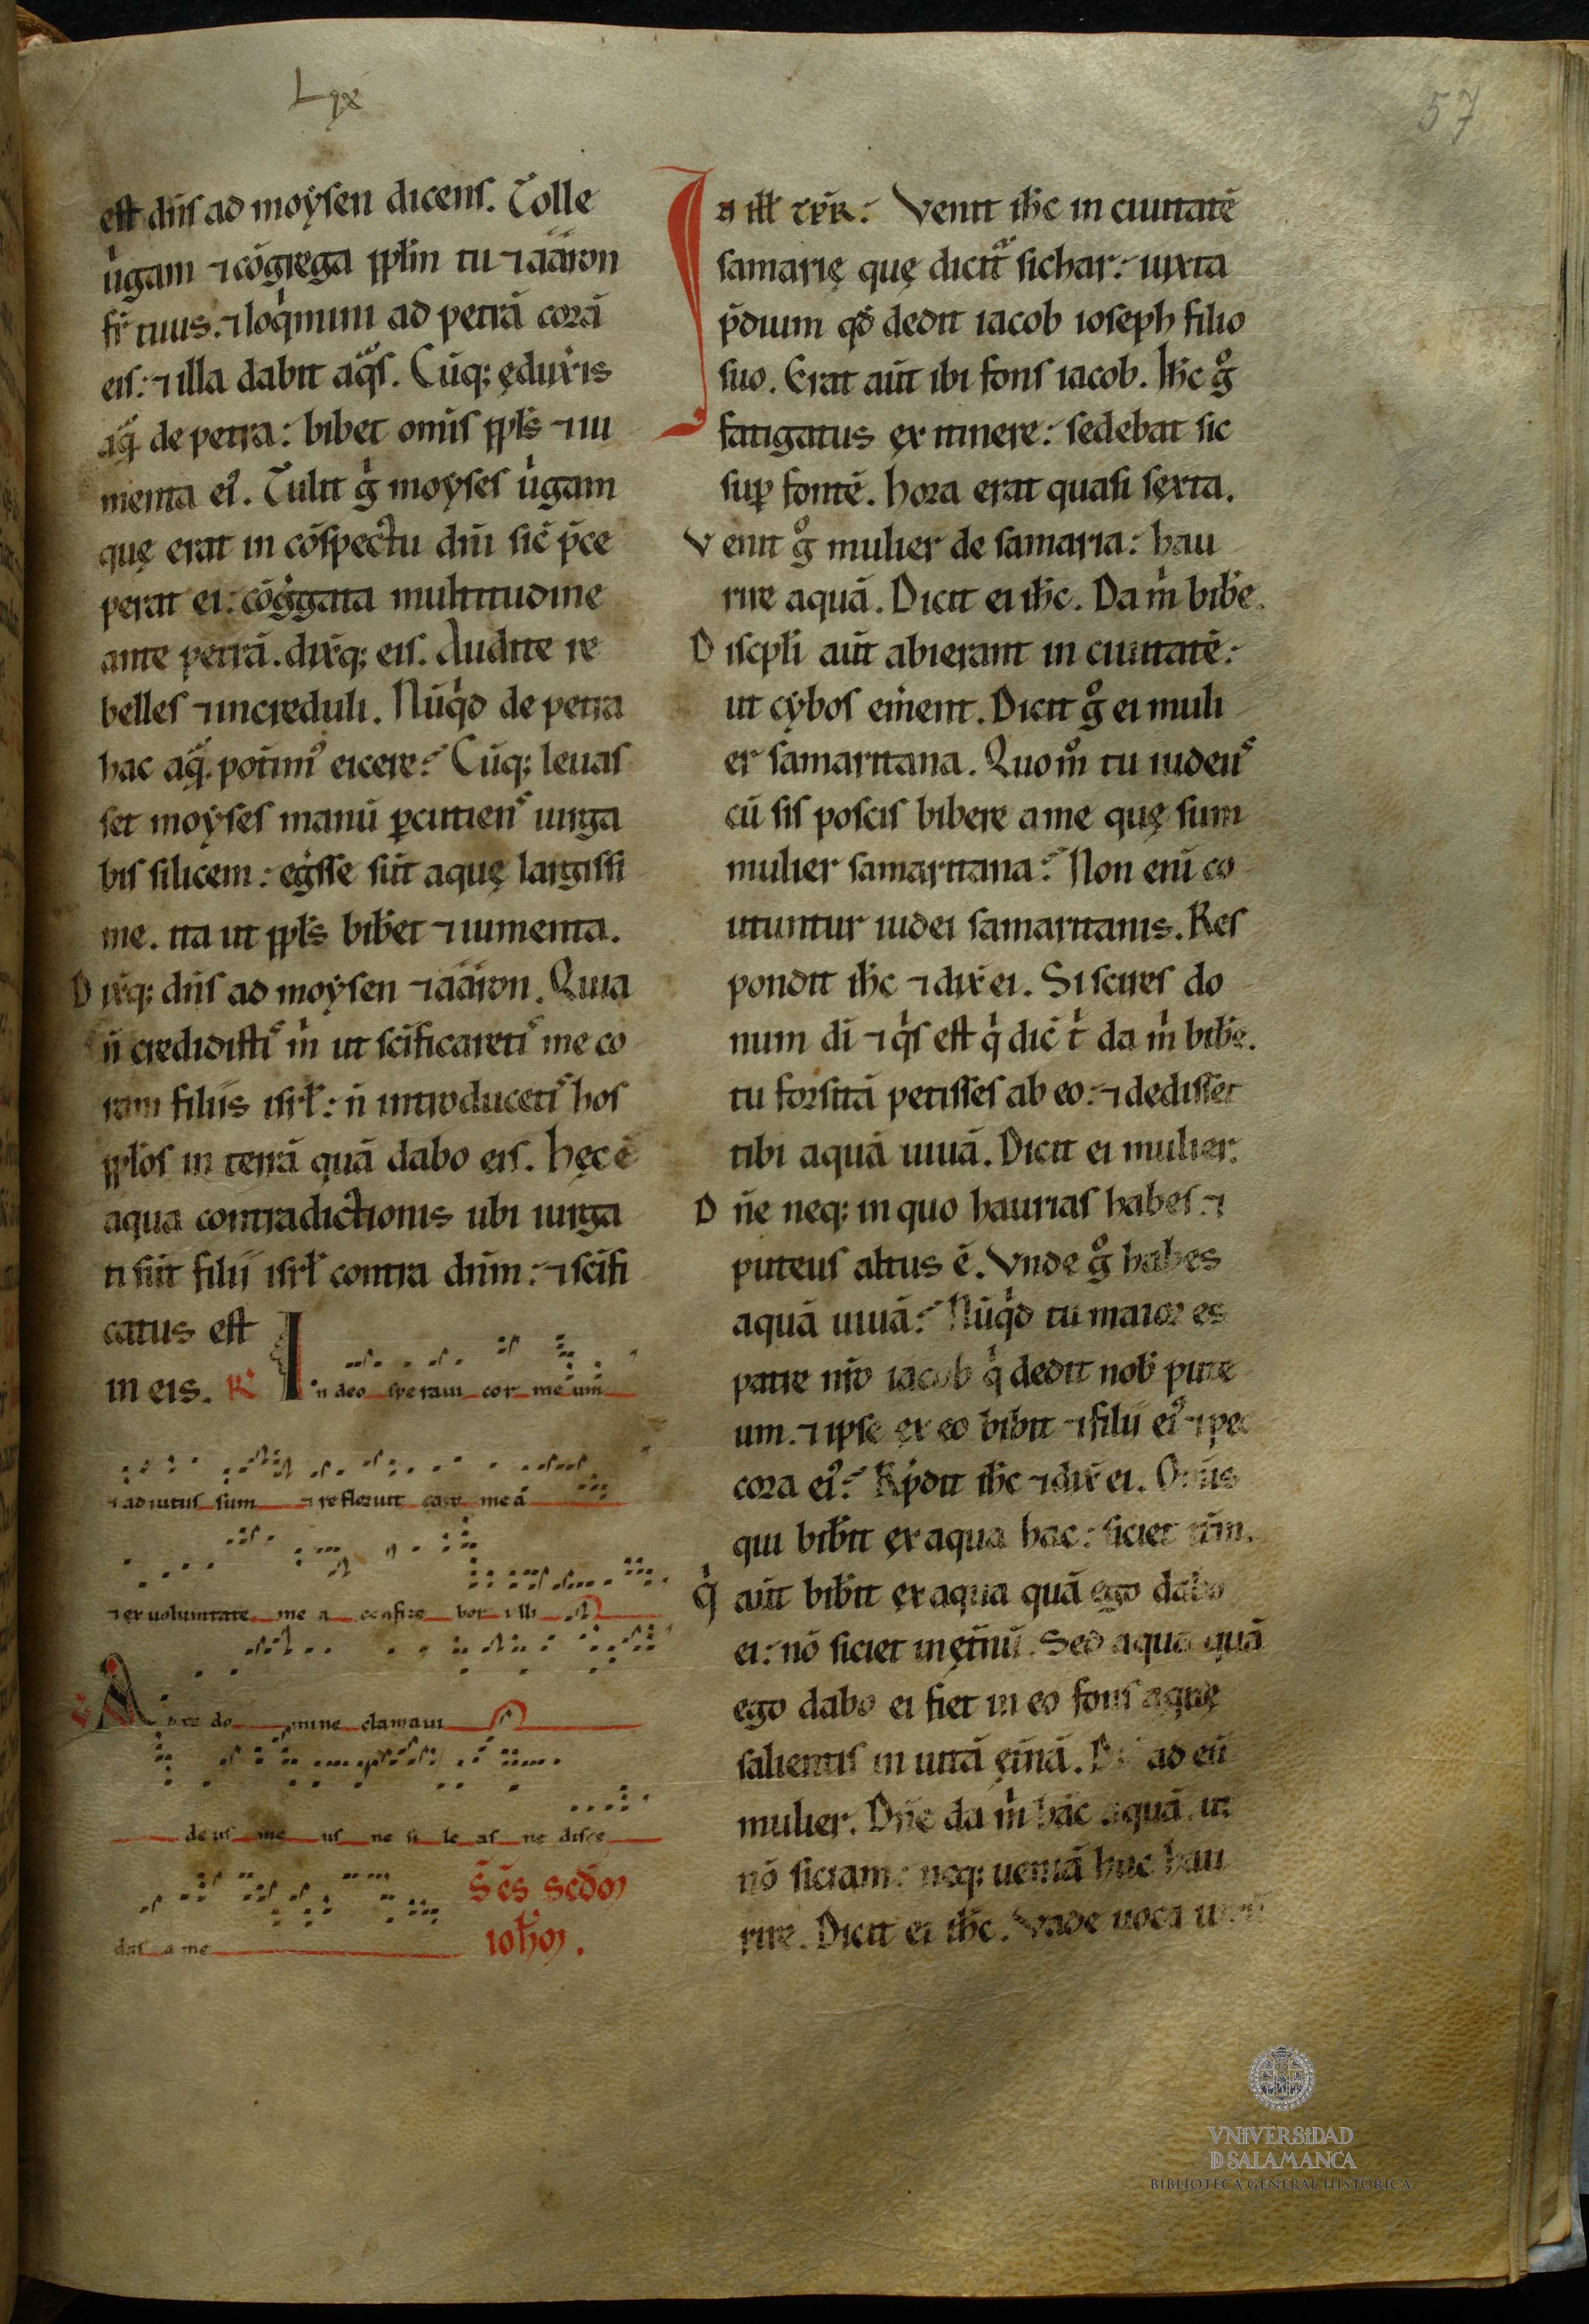 Lxx
57
est dn̄s ad moẏsen dicens. Tolle
uͥgam ⁊ cōgrega ppl̄m tu ⁊ ááron
fr̄ tuus. ⁊ loqͥmini ad petrā corā
eis: ⁊ illa dabit aqͣs. Cūq; ędux̄is
aqͣ de petra: bibet om̄is ppl̄s ⁊ iu
menta ei᾽. Tulit gͥ moẏses uͥgam
quę erat in cōspectu dn̄i sic̄ p̄ce
perat ei: cōgͥgata multitudine
ante petrā. dix̄q; eis. Audite re
belles ⁊ increduli. Nūqͥd de petra
hac aqͣ potim᾽ eicere? Cūq; leuas
set moẏses manū ꝑcutiens uirga
bis silicem: egͥsse sūt aquę largissi
me. ita ut ppl̄s bib̄et ⁊ iumenta.
Dix̄q; dn̄s ad moẏsen ⁊ ááron. Quia
n̄ credidistis mͥ ut sc̄ificaretis me co
ram filiis isrl̄: n̄ introducetis hos
ppl̄os in terrā quā dabo eis. hęc ē
aqua contradictionis ubi iurga
ti sūt filii isrl̄ contra dn̄m: ⁊ sc̄ifi
catus est
in eis. R̄ In deo speraui cor meum
⁊ adiutus sum ⁊ refloruit caro meā
⁊ ex uoluntate mea confite bor illi
V̄ Ad te domine clamaui
deus meus ne sileas ne disce
das a me S̄es sc̄dm
ioh̄m.
In ill̄ tp̄r: Venit ih̄c in ciuitatē
samarię quę dicitͣ sichar: iuxta
p̄dium qd̄ dedit iacob ioseph filio
suo. Erat aūt ibi fons iacob. Ih̄c gͦ
fatigatus ex itinere: sedebat sic
suꝑ fontē. hora erat quasi sęxta.
Venit gͦ mulier de samaria: hau
rire aquā. Dicit ei ih̄c. Da mͥ bib̄e.
Discpl̄i aūt abierant in ciuitatē:
ut cẏbos em̄ent. Dicit gͦ ei muli
er samaritana. Quom̊ tu iudeus
cū sis poscis bibere a me quę sum
mulier samaritana? Non enī co
utuntur iudei samaritanis. Res
pondit ih̄c ⁊ dix̄ ei. Si scires do
num dī ⁊ qͥs est qͥ dic̄ tͥ da mͥ bib̄e.
tu forsitā petisses ab eo: ⁊ dedisset
tibi aquā uiuā. Dicit ei mulier.
Dn̄e neq; in quo haurias habes ⁊
puteus altus ē. Vnde gͦ habes
aquā uiuā? Nūqͥd tu maior es
patre nr̄o iacob qͥ dedit nob̄ pute
um. ⁊ ipse ex eo bibit ⁊ filii ei᾽ ⁊ pec
cora ei᾽? Rp̄dit ih̄c ⁊ dix̄ ei. Om̄is
qui bib̄it ex aqua hac: siciet itm̄.
qͥ aūt bib̄it ex aqua quā ego dabo
ei: nō siciet in ęt̄nū. Sed aqua quā
ego dabo ei fiet in eo fons aquę
salientis in uitā ęt̄nā. ad eū
mulier. Dn̄e da mͥ hāc aquā. ut
nō siciam: neq; ueniā huc hau
rire. Dicit ei ih̄c. Vade uoca
VNiVERSiDAD
D SALAMANCA
BIBLIOTECA GENERAL HISTÓRICA